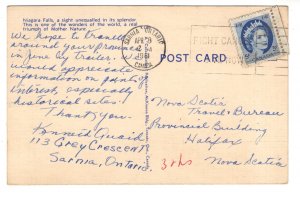 Niagara Falls, a sight unequalled in its splendor
This is one of the wonders of the world, a real
triumph of Mother Nature.
We hope to travel
around your province
in June by trailer. We
would appreciate
information on points of
interest, especially
historical sites!
Thank-you.
Quaid
113 Grey Crescent
Sarnia, Ontario.
SARNIA ONTARIO
1961
POST CARD
Nova Scotia
Travel Bureau
Provincial Building
Halifax
Nova Scotia